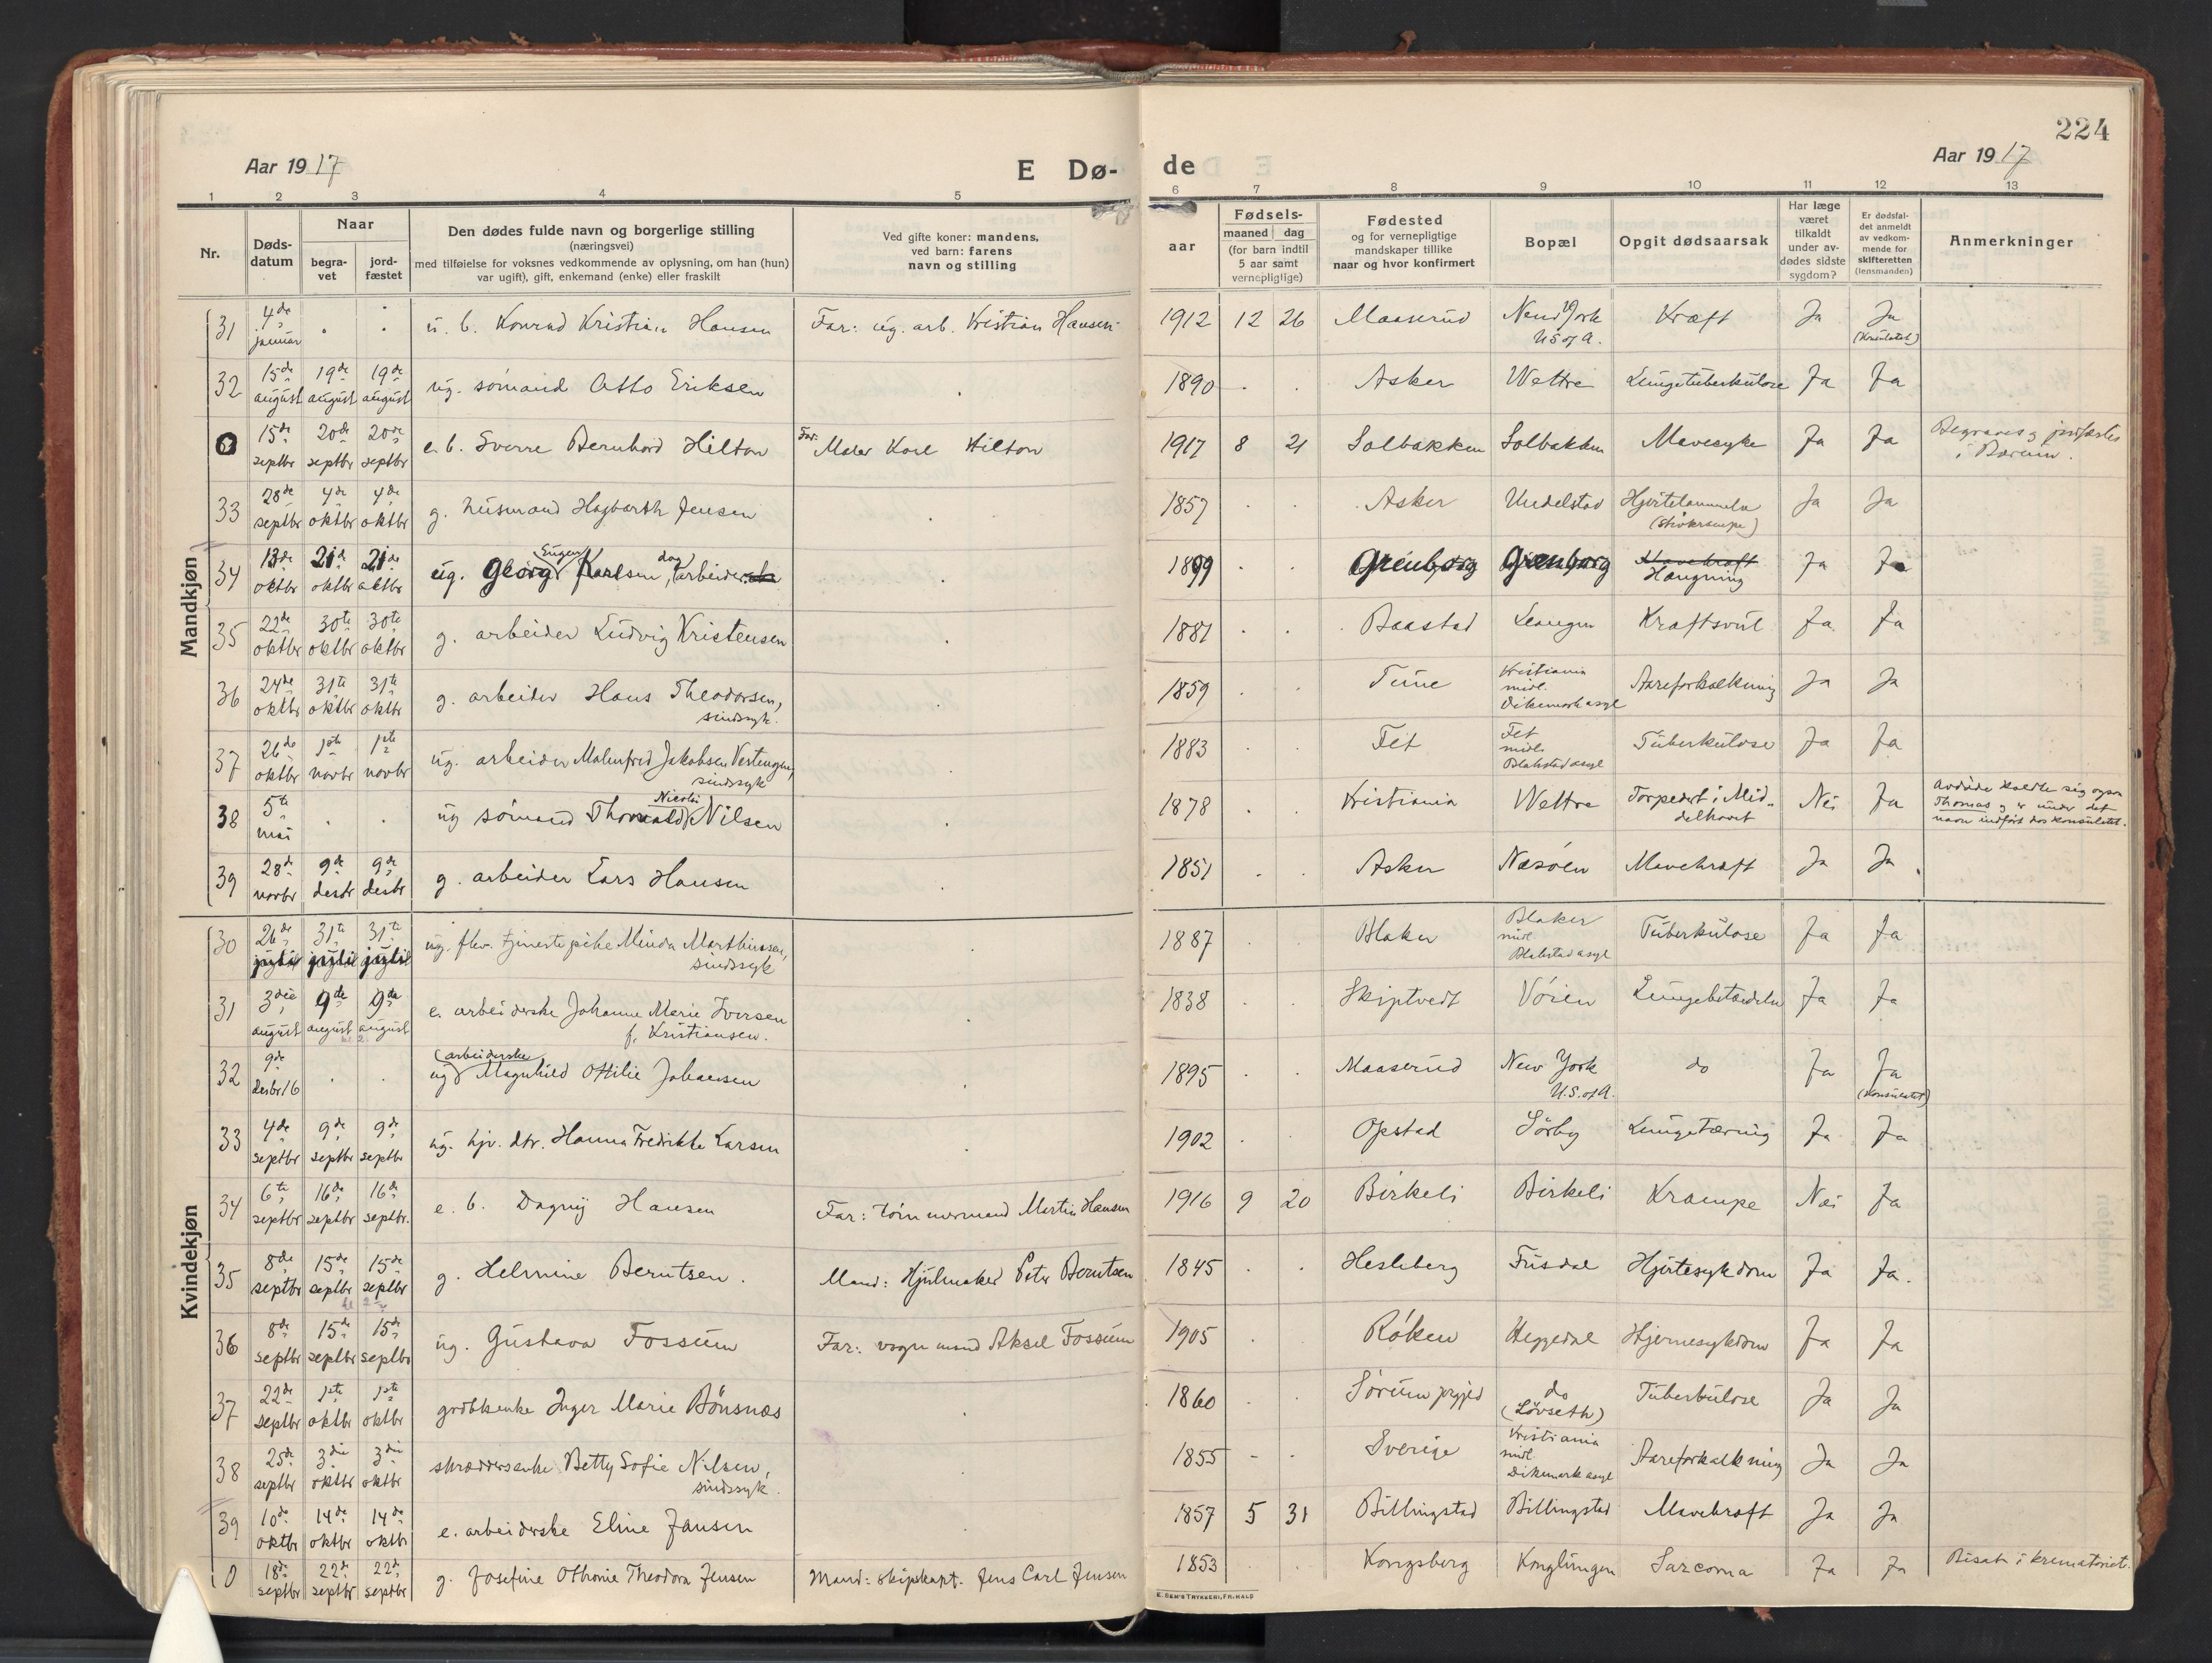 224
Aar 1917
E Dø-
de
Aar 1917
1 2 3 4 5 6 7 8 9 10 11 12 13
Nr.
Døds-
datum
Naar
begra-
vet
jord-
fæstet
Den dødes fulde navn og borgerlige stilling
(næringsvei)
med tilføielse for voksnes vedkommende av oplysning, om han (hun)
var ugift), gift, enkemand (enke) eller fraskilt
Ved gifte koner: mandens,
ved barn: farens
navn og stilling
aar
Fødsels-
maaned dag
(for barn indtil
5 aar samt
vernepligtige)
Fødested
og for vernepligtige
mandskaper tillike
naar og hvor konfirmert
Bopæl
Opgit dødsaarsak
Har læge
været
tilkaldt
under av-
dødes sidste
sygdom?
Er dødsfal-
det anmeldt
av vedkom-
mende for
skifteretten
(lensmanden)
Anmerkninger
Mandkjøn
31 4de januar . . u. b. Konrad Kristian Hansen Far: ug. arb. Kristian Hansen 1912 12 26 Maaserud New York U S of A. Kræft Ja Ja (Konsulatet)
32 15de august 19de august 19de august ug. sømand Otto Eriksen . 1890 . . Asker Wettre Lungetuberkulose Ja Ja
0 15de septbr 20de septbr 20de septbr e. b. Sverre Bernhard Hilton Far: Maler Karl Hilton 1917 8 21 Solbakken Solbakken Mavesyke Ja Ja Begraves og jordfæstes i Bærum.
33 28de septbr 4de oktbr 4de oktbr g. husmand Hagbarth Jensen . 1857 . . Asker Undelstad Hjertelammelse (Stivkrampe) Ja Ja
34 13de oktbr 21de oktbr 21de oktbr ug. Georg Eugen Karlsen, dagarbeider . 1899 . . Greniborg Greniborg Mavekræft Hængning Ja Ja
35 22de oktbr 30te oktbr 30te oktbr g. arbeider Ludvig Kristensen . 1881 . . Baastad Leangen Kræftsvul Ja Ja
36 24de oktbr 31te oktbr 31te oktbr g. arbeider Hans Theodorsen, sindssyk. . 1859 . . Tune Kristiania midl. Dikemark asyl Aareforkalkning Ja Ja
37 26de oktbr 1ste novbr 1ste novbr ug. arbeider Malmfred Jakobsen Vestengen, sindssyk . 1883 . . Fet Fet midl. Blakstad asyl Tuberkulose Ja Ja
38 5te mai . . ug sømand Thorvald Nicolai Nilsen 1878 . . Kristiania Wettre Torpedert i Middelhavet Nei Ja Avdøde kaldte sig ogsaa Thomas og er under det navn indført hos konsulatet.
39 28de novbr 9de desbr 9de desbr g. arbeider Lars Hansen . 1851 . . Asker Næsøen Mavekræft Ja Ja
Kvindekjøn
30 26de juli 31te juli 31te juli ug. fhv. tjenestepike Minda Marthinsen, sindssyk . 1887 . . Blaker Blaker midl. Blakstad asyl Tuberkulose Ja Ja
31 3die august 9de august 9de august e. arbeiderske Johanne Marie Iversen f. Kristiansen. . 1838 . . Skiptvedt Vøien Lungebetændelse Ja Ja
32 9de desbr 16 . . ug arbeiderske Magnhild Ottilie Johansen . 1895 . . Maaserud New York U.S. of A. do Ja Ja (Konsulatet)
33 4de septbr 9de septbr 9de septbr ug. hjv. dtr. Hanna Fredrikke Larsen . 1902 . . Opstad Sørby Lungetæring Ja Ja
34 6te septbr 16de septbr 16de septbr. e. b. Dagny Hansen Far: tømmermand Martin Hansen 1916 9 20 Birkeli Birkeli Krampe Nei Ja
35 8de septbr 15de septbr 15de septbr g. Helmine Berntsen. Mand: Hjulmaker Peter Berntsen 1845 . . Hesleberg Fusdal Hjertesykdom Ja Ja.
36 8de septbr 15de septbr 15de septbr ug. Gustava Fossum Far: vognmand Aksel Fossum 1905 . . Røken Heggedal Hjernesykdom Ja Ja
37 22de septbr 1ste oktbr 1ste oktbr grdbkenke Inger Marie Bønsnæs . 1860 . . Sørum do (Løvseth) Tuberkulose Ja Ja
38 25de septbr 3die oktbr 3die oktbr skræddersenke Betty Sofie Nilsen, sindssyk. . 1855 - - Sverige Kristiania midl. Dikemark asyl Aareforkalkning Ja Ja
39 10de oktbr 14de oktbr 14de oktbr e. arbeiderske Eline Jansen . 1857 5 31 Billingstad Billingstad Mavekræft Ja Ja
0 18de septbr 22de septbr 22de septbr g. Josefine Othonie Theodora Jensen Mand: skipskapt. Jens Carl Jensen 1853 . . Kongsberg Konglungen Sarcoma Ja Ja Bisat i krematoriet.